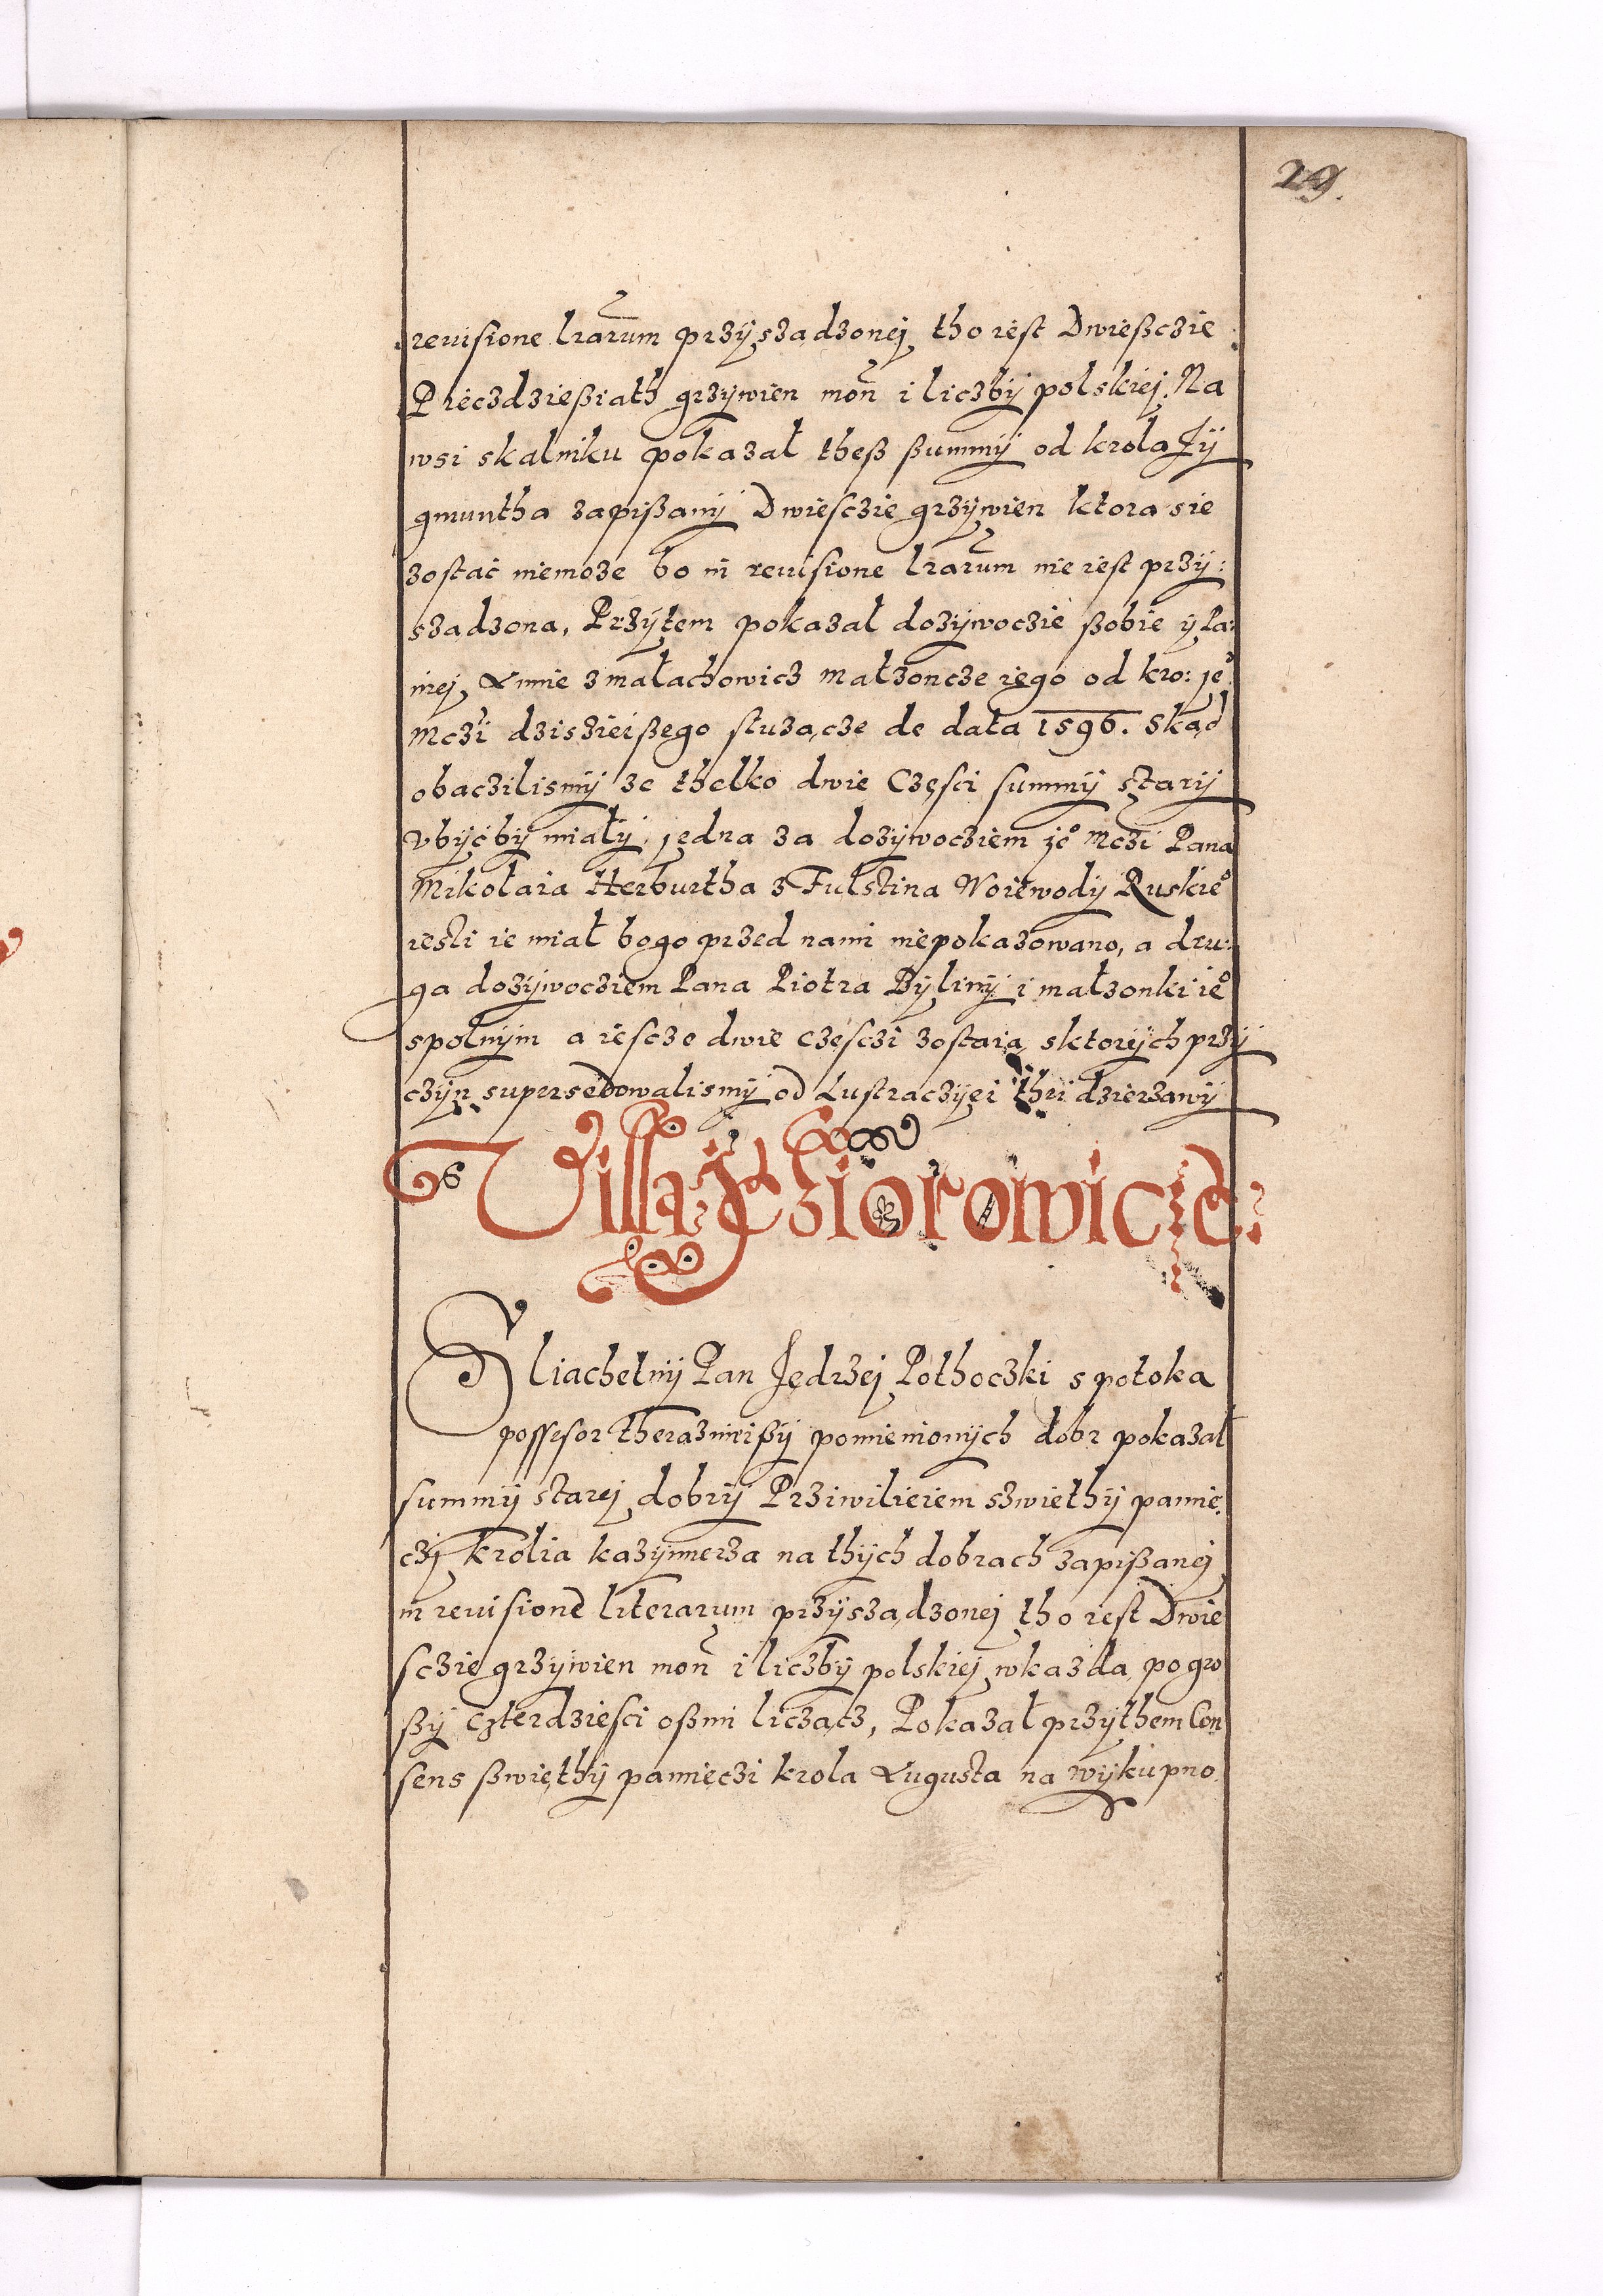 29.
revisione lrarum przÿsządzonej tho iest Dwießczie
Piẻczdzießiath grzÿwien mon̄ i liczbÿ polskiej. Na
wsi skalniku pokazał theß ßummÿ od krola Jÿ
gmuntha zapißanÿ Dwiesczie grzÿwien ktora sie
zostać niemoze bo in revisione lrarum nie iest przÿ:
sządzona, Przÿtem pokazał dozÿwoczie ßobie ÿ Pa:
niej Annie z małachowicz małzoncze iego od kro: je°
Mczi dziszieißego służącze de data 1596. Skąd
obaczilismÿ ze thelko dwie Częsci summÿ starÿ
Vbÿćbÿ miałÿ, jędna za dozÿwocziem je° Mczi Pana
Mikołaia Herburtha z Fulstina Woiewodÿ Ruskie°
iesli ie miał bogo przed nami niepokazowano, a dru:
ga dozÿwocziem Pana Piotra Bÿlinÿ i małzonki ie°
spolnÿm a iescze dwie częsczi zostaią sktorÿch przÿ
czÿn supersedowalismÿ od Lustraczÿei thei dzierzawÿ
Villa Jedziorowicze
Sliachetnÿ Pan Jędrzej Pothoczki s potoka
possesor theraznieißÿ pomienionÿch dobr pokazał
summÿ starej dobrÿ Prziwilieiem szwiethÿ pamię
czj krolia kazÿmierza na thÿch dobrach zapißanej
in revisione literarum przÿsządzonej tho iest Dwie
sczie grzÿwien mon̄ i liczbÿ polskiej wkazda po gro
ßÿ czterdziesci oßmi licząci, Pokazał przÿthem Con
sens ßwięthÿ pamięczi krola Augusta na wÿkupno